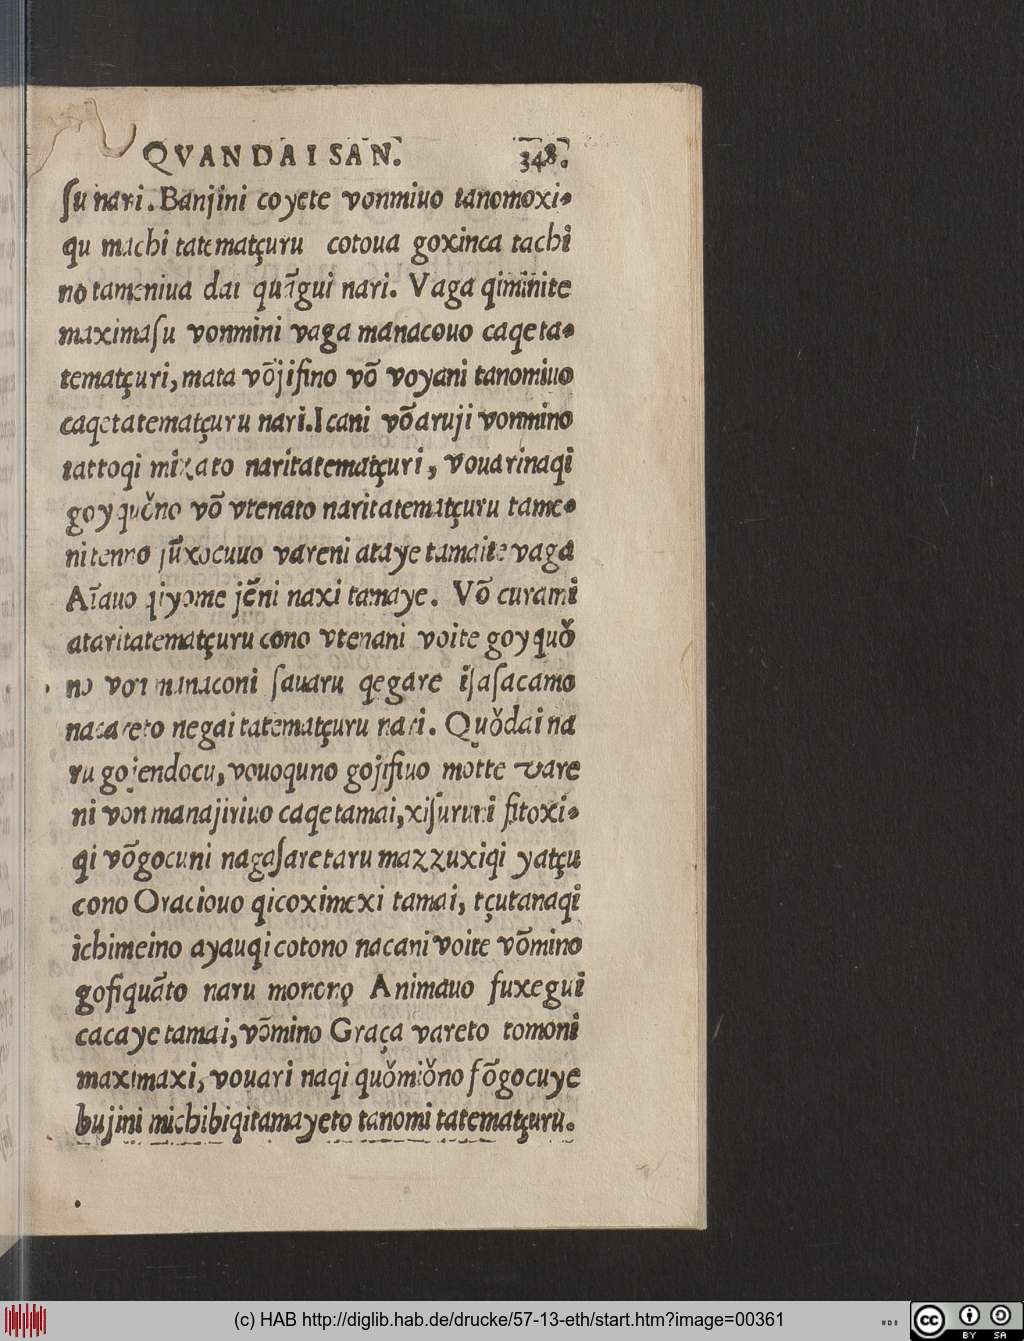 QVANDAI SAN. 348.
ſu nari. Banjini coyete vonmiuo tanomoxi-
qu machi tatematçuru cotoua goxinca tachi
no tameniua dai quãgui nari. Vaga qiminite
maximaſu vonmini vaga manacouo caqeta-
tematçuri, mata võjiſino võ voyani tanomiuo
caqetatematçuru nari. Icani võaruji vonmino
tattoqi mizato naritatematçuri, vouarinaqi
goyquǒno võ vtenato naritatematçuru tame-
ni tenno jũxocuuo vareni ataye tamaite vaga
Aĩauo qiyome jẽni naxi tamaye. Võ curami
ataritatematçuru cono vtenani voite goyquǒ
no von manaconi ſauaru qegare iſaſacamo
nacareto negai tatematçuru nari. Quǒdai na
ru gojendocu, vouoquno gojiſiuo motte vare
ni von manajiriuo caqe tamai, xiſururi ſitoxi-
qi võgocuni nagaſaretaru mazzuxiqi yatçu
cono Oraciouo qicoximexi tamai, tçutanaqi
ichimeino ayauqi cotono nacani voite võmino
goſiquãto naru monono Animauo fuxegui
cacaye tamai, võmino Graça vareto tomoni
maximaxi, vouari naqi quǒmiǒno fõgocuye
bujini michibiqitamayeto tanomi tatematçuru.
(c) HAB http://diglib.hab.de/drucke/57-13-eth/start.htm?image=00361
cc BY SA